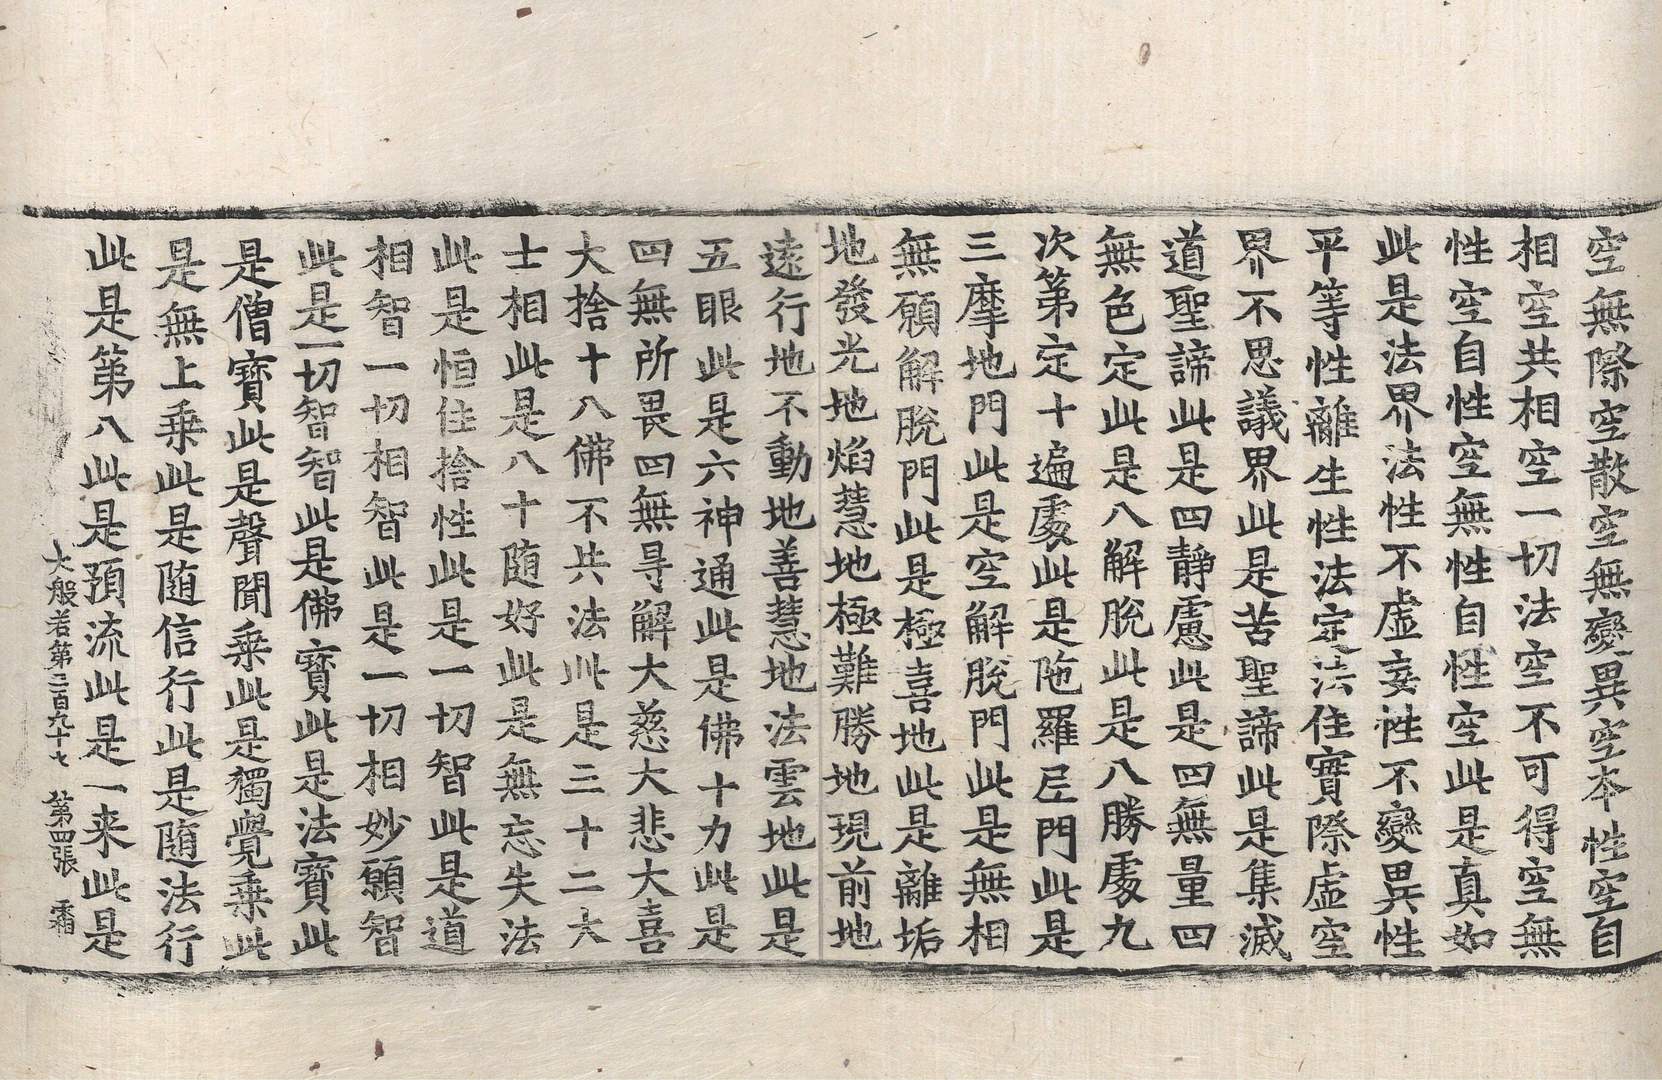 空無際空散空無變異空本性空自
相空共相空一切法空不可得空無
性空自性空無性自性空此是真如
此是法界法性不虛妄性不變異性
平等性離生性法定法住實際虛空
界不思議界此是苦聖諦此是集滅
道聖諦此是四靜慮此是四無量四
無色定此是八解脫此是八勝處九
次第定十遍處此是陁羅尼門此是
三摩地門此是空解脫門此是無相
無願解脫門此是極喜地此是離垢
地發光地焰慧地極難勝地現前地
遠行地不動地善慧地法雲地此是
五眼此是六神通此是佛十力此是
四無所畏四無㝵解大慈大悲大喜
大捨十八佛不共法此是三十二大
士相此是八十随好此是無忘失法
此是恒住捨性此是一切智此是道
相智一切相智此是一切相妙願智
此是一切智智此是佛寶此是法寶此
是僧寶此是聲聞乘此是獨覺乘此
是無上乘此是随信行此是随法行
此是第八此是預流此是一来此是
大般若第二百九十七 第四張 霜